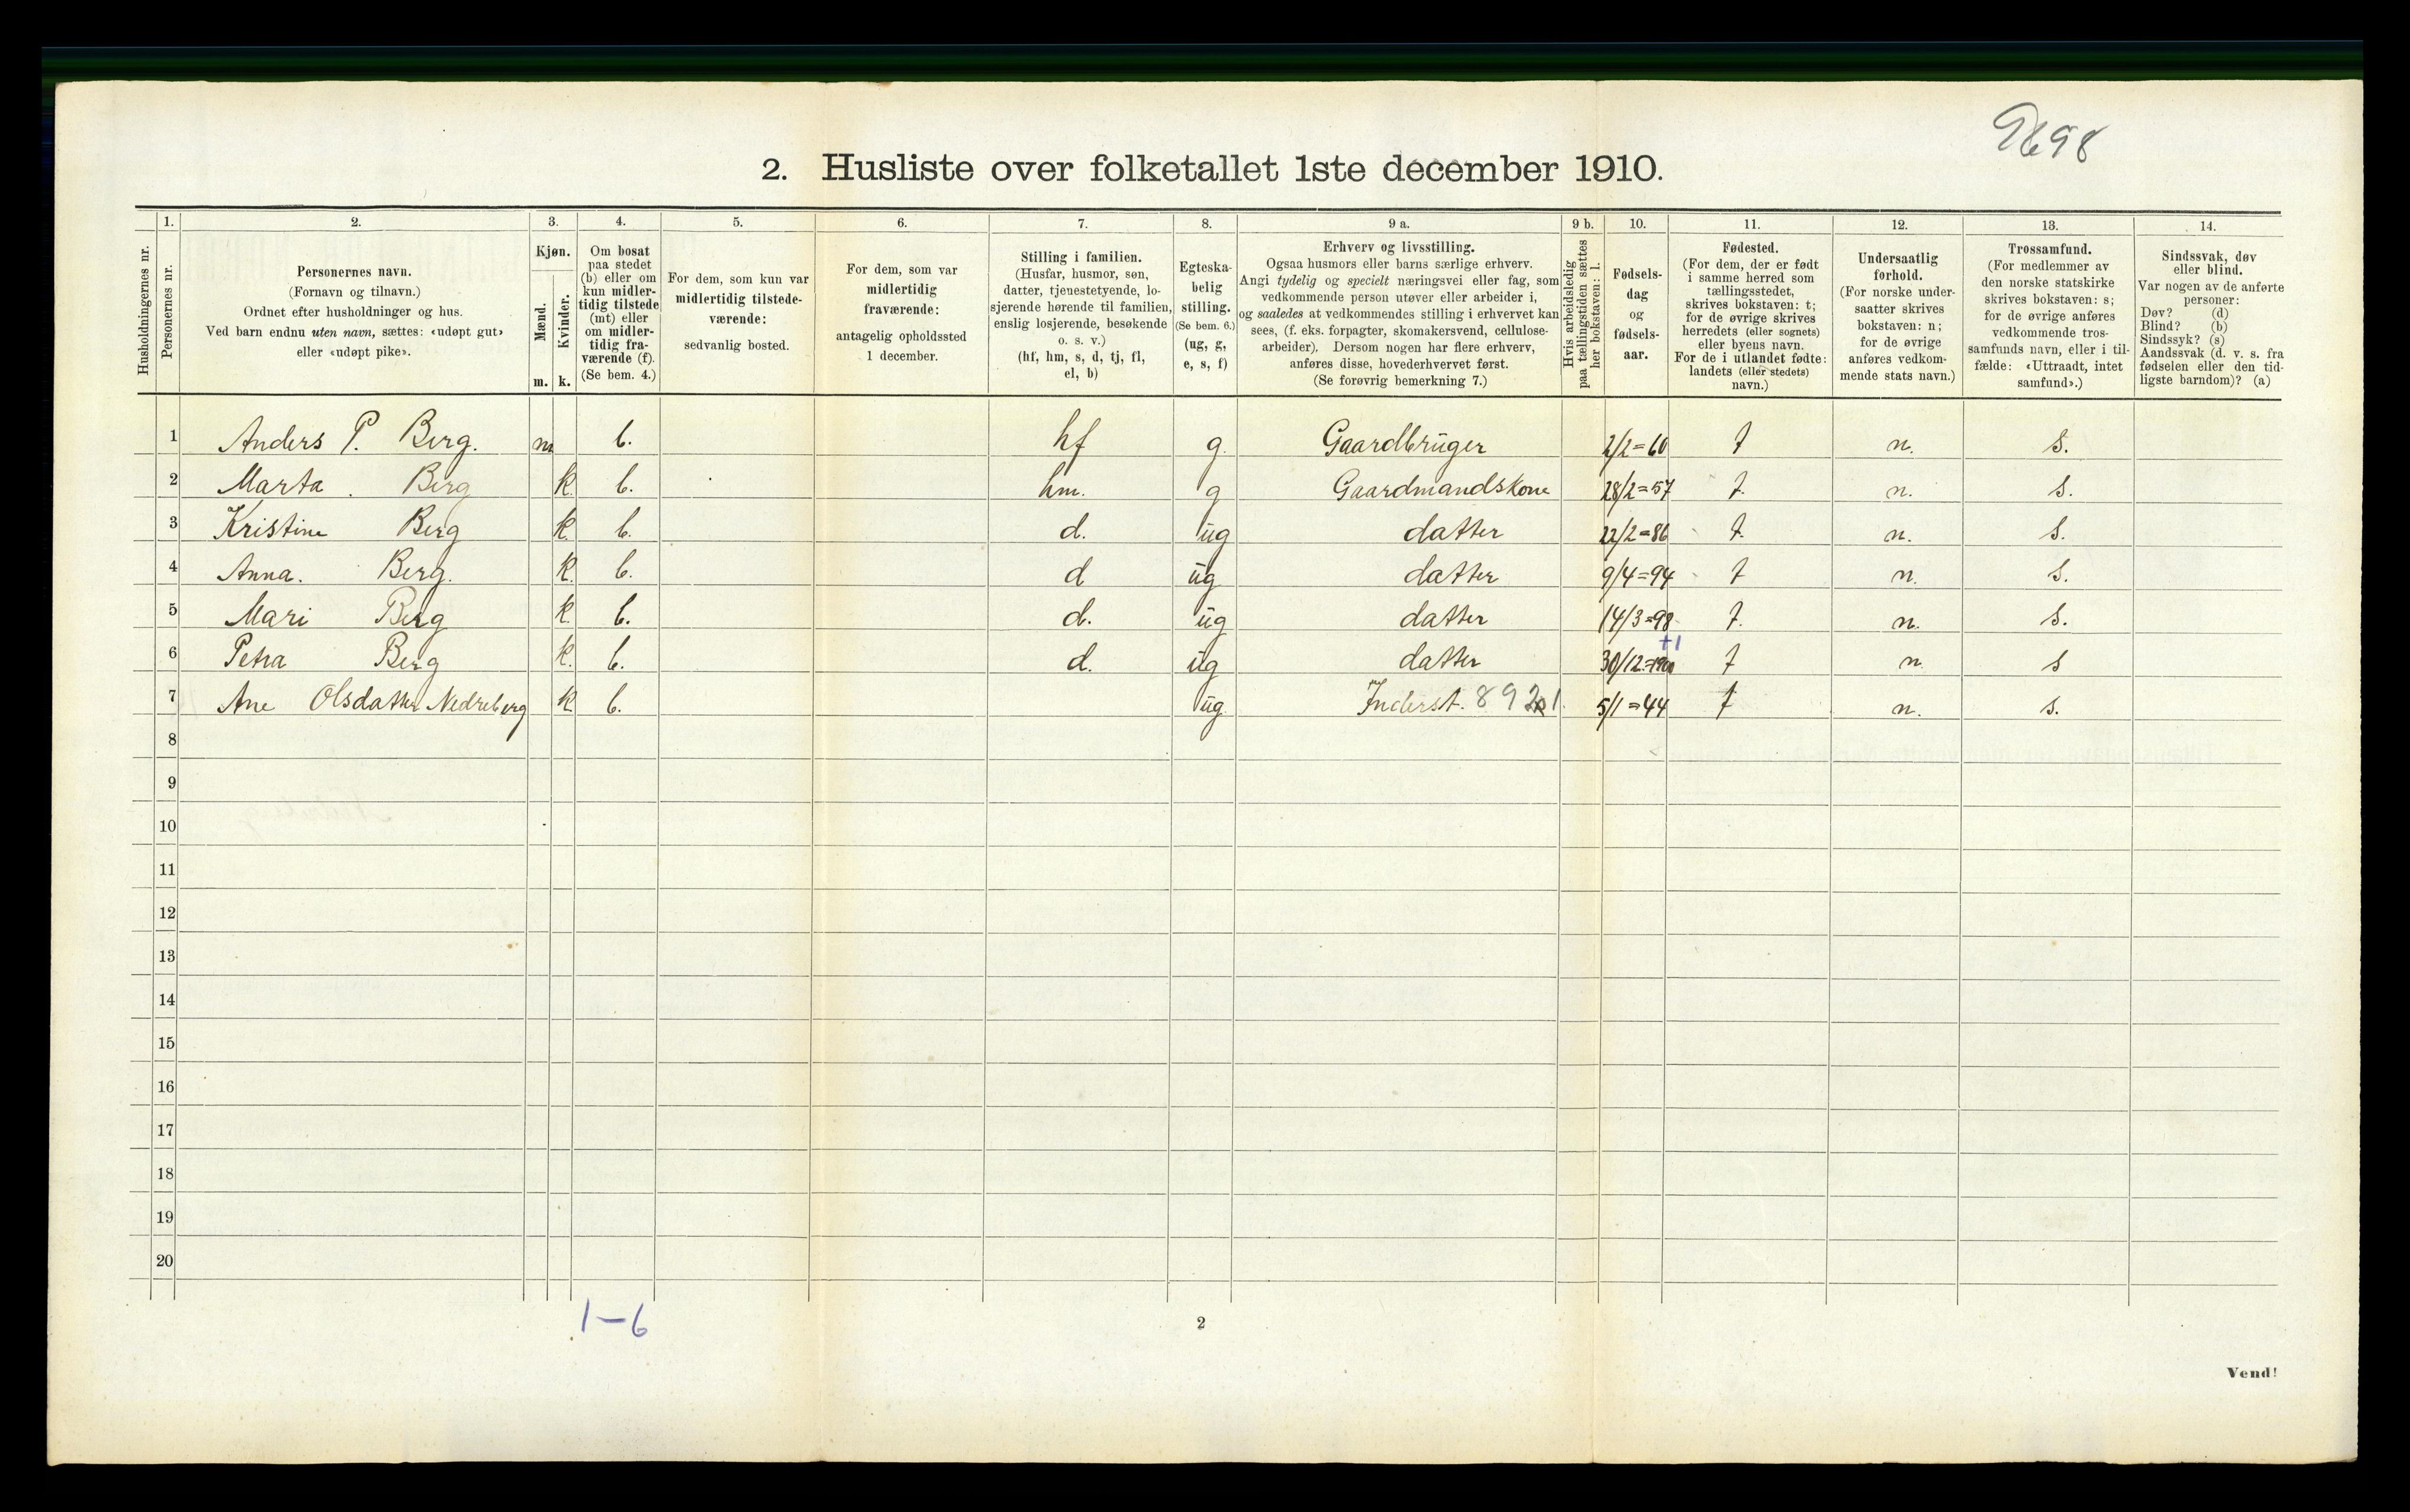 9698
2. Husliste over folketallet 1ste december 1910.
Husholdningernes nr.
1. Personernes nr.
2. Personernes navn.
(Fornavn og tilnavn.)
Ordnet efter husholdninger og hus.
Ved barn endnu uten navn, sættes: «udøpt gut»
eller «udøpt pike».
3. Kjøn.
Mænd. m.
Kvinder. k.
4. Om bosat
paa stedet
(b) eller om
kun midler-
tidig tilstede
(mt) eller
om midler-
tidig fra-
værende (f).
(Se bem. 4.)
5. For dem, som kun var
midlertidig tilstede-
værende:
sedvanlig bosted.
6. For dem, som var
midlertidig
fraværende:
antagelig opholdssted
1 december.
7. Stilling i familien.
(Husfar, husmor, søn,
datter, tjenestetyende, lo-
sjerende hørende til familien,
enslig losjerende, besøkende
o. s. v.)
(hf, hm, s, d, tj, fl,
el, b)
8. Egteska-
belig
stilling.
(Se bem. 6.)
(ug, g,
e, s, f)
9 a. Erhverv og livsstilling.
Ogsaa husmors eller barns særlige erhverv.
Angi tydelig og specielt næringsvei eller fag, som
vedkommende person utøver eller arbeider i,
og saaledes at vedkommendes stilling i erhvervet kan
sees, (f. eks. forpagter, skomakersvend, cellulose-
arbeider). Dersom nogen har flere erhverv,
anføres disse, hovederhvervet først.
(Se forøvrig bemerkning 7.)
9 b. Hvis arbeidsledig
paa tællingstiden sættes
her bokstaven: l.
10. Fødsels-
dag
og
fødsels-
aar.
11. Fødested.
(For dem, der er født
i samme herred som
tællingsstedet,
skrives bokstaven: t;
for de øvrige skrives
herredets (eller sognets)
eller byens navn.
For de i utlandet fødte:
landets (eller stedets)
navn.)
12. Undersaatlig
forhold.
(For norske under-
saatter skrives
bokstaven: n;
for de øvrige
anføres vedkom-
mende stats navn.)
13. Trossamfund.
(For medlemmer av
den norske statskirke
skrives bokstaven: s;
for de øvrige anføres
vedkommende tros-
samfunds navn, eller i til-
fælde: «Uttraadt, intet
samfund».)
14. Sindssvak, døv
eller blind.
Var nogen av de anførte
personer:
Døv? (d)
Blind? (b)
Sindssyk? (s)
Aandssvak (d. v. s. fra
fødselen eller den tid-
ligste barndom)? (a)
1 Anders P. Berg. m b. hf g. Gaardbrüger 2/2=60 t n. s.
2 Marta . Berg k. b. hm. g Gaardmandskone 28/2=57 t. n. s.
3 Kristine Berg k. b. d. üg datter 22/2=86 t. n. s.
4 Anna. Berg. k. b. d üg datter 9/4=94 t n. s.
5 Mari Berg k. b. d. üg datter 14/3=98 t. n. s.
+1
6 Petra Berg k. b. d. üg datter 30/12=1900 t n. s
7 Ane Olsdatter Nedreberg k b. üg Inderst. 892 1. 5/1=44 t n. s.
8
9
10
11
12
13
14
15
16
17
18
19
20
1-6
2
Vend!